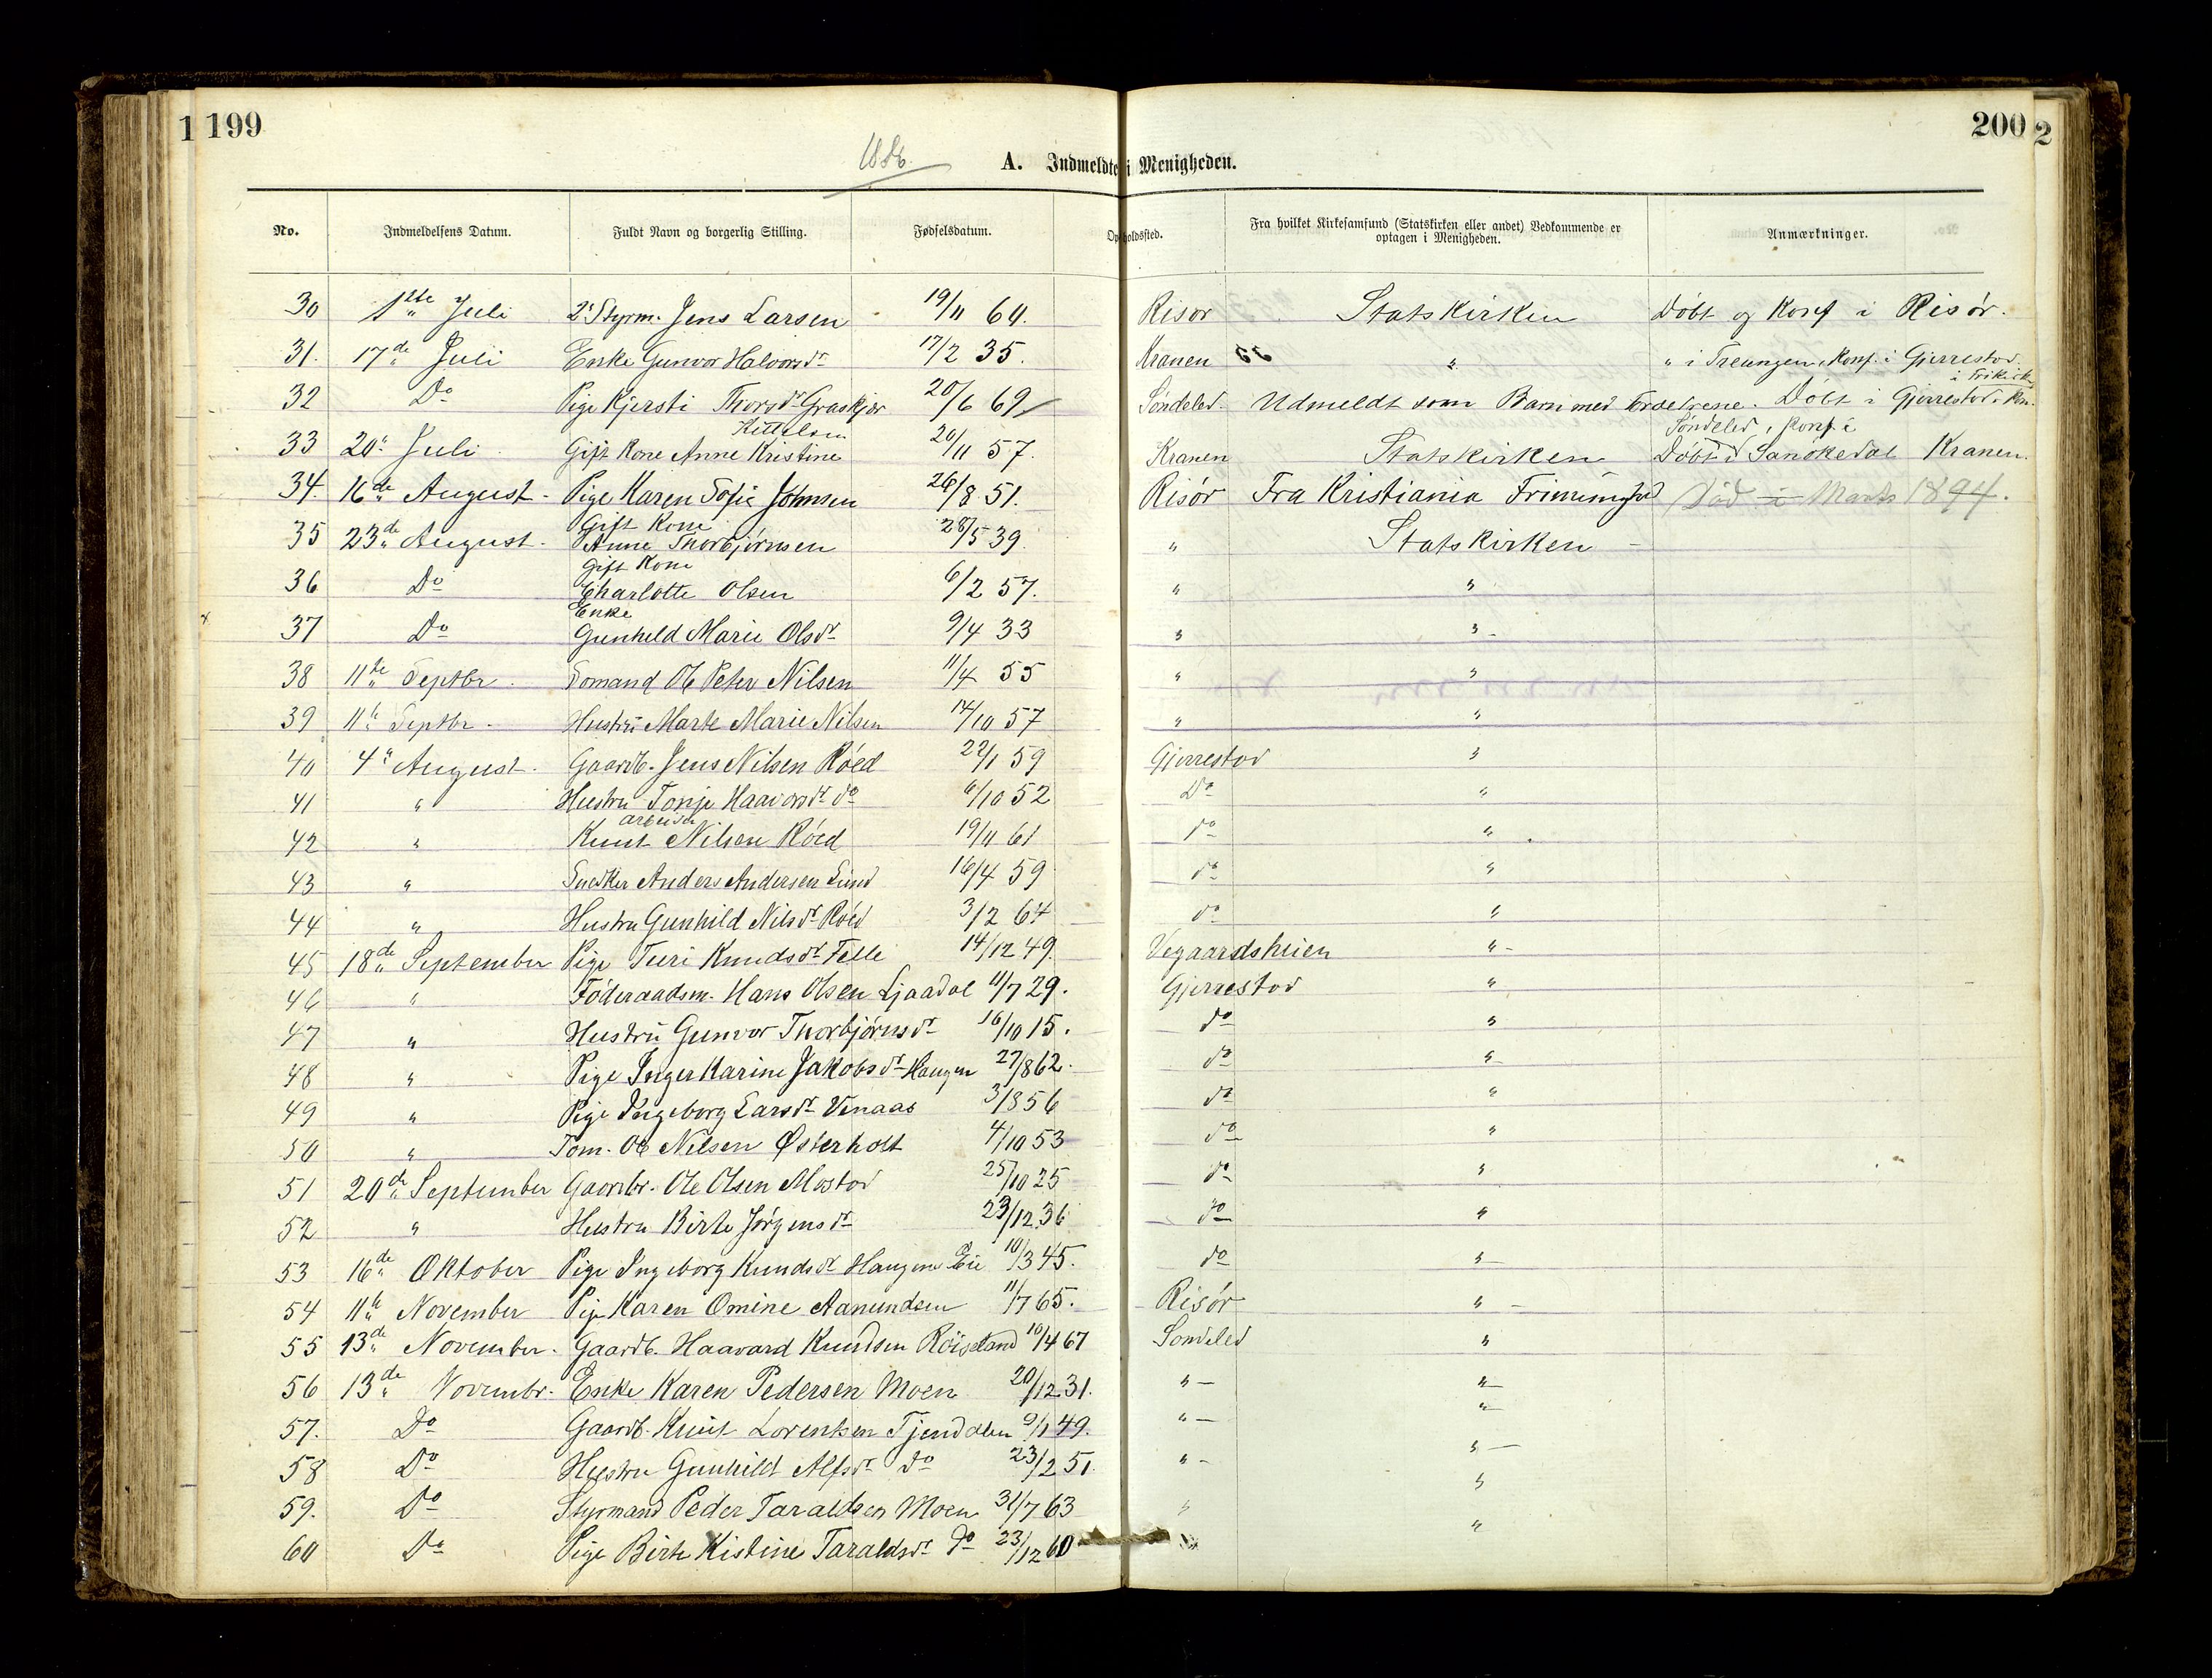 1 199
200 2
1886.
A. Indmeldte i Menigheden.
No. Indmeldelsens Datum. Fuldt Navn og borgerlig Stilling. Fødselsdatum. Opholdssted. Fra hvilket Kirkesamfund (Statskirken eller andet) Vedkommende er optagen i Menigheden. Anmærkninger.
30 1ste Juli 2den Styrm. Jens Larsen 19/11 60. Risør Statskirken Døbt og Konf i Risør.
31. 17de Juli Enke Gunvor Halvorsdr 17/2 35. Kranen " " i Treungen, Konf. i Gjerrestad.
32 Do Pige Kjersti Thorsdr Graskjær 20/6 69 Søndeled. Udmeldt som Barn med Forældrene. Døbt i Gjerrestad, Kon. i Frikirk
33 20. Juli Gift Kone Anne Kristine Kittelsen 20/11 57. Kranen Statskirken Døbt i Sanøkedal Søndeled, Konf i Kranen.
34. 16de August Pige Karen Sofie Johnsen 26/8 51. Risør Fra Kristiania Frimenighed Død i Marts 1894.
35 23de August. Gift Kone Anne Thorbjørnsen 28/5 39 " Statskirken
36 Do Gift Kone Charlotte Olsen 6/2 57. " "
37 Do Enke Gunhild Marie Olsdr 9/4 33 " "
38 11te Septbr. Sømand Ole Peter Nilsen 11/4 55 " "
39 11te Septbr. Hustru Marte Marie Nilsen 14/10 57 " "
40 4de August. Gaardb. Jens Nilsen Røed 22/1 59 Gjerrestad "
41 " Hustru Tonje Haavorsdr do 6/10 52 Do "
42 " arbeider Knut Nilsen Røed 19/11 61 do "
43 " Snedker Anders Andersen Lund 16/4 59 do "
44 " Hustru Gunhild Nilsdr Røed 3/2 64 do "
45 18de September Pige Turi Knudsdr Felle 14/12 49. Vegaardsheien "
46 " Føderaadsm. Hans Olsen Ljaadal 11/7 29. Gjerrestad "
47 " Hustru Gunvor Thorbjørnsdr 16/10 15. do "
48 " Pige Inger Karine Jakobsdr Haugen 27/8 62. do "
49 " Pige Ingeborg Larsdr Venaas 3/8 56 do "
50 " Tom. Ole Nilsen Østerholt 4/10 53 do "
51 20de September Gaardbr. Ole Olsen Mostad 25/10 25 do "
52 " Hustru Birte Jørgensdr 23/12 36 do "
53 16de Oktober Pige Ingeborg Knudsdr Haugene Eie 10/3 45. do "
54 11te November Pige Karen Omine Aanundsen 11/7 65. Risør "
55 13de November. Gaardb. Haavard Knudsen Røisland 10/4 67 Søndeled "
56 13de Novembr. Enke Karen Pedersen Moen 20/12 31. " "
57. Do Gaardb. Knut Lorentsen Tjenddalen 9/1 49. " "
58 Do Hustru Gunhild Alfsdr do 23/2 51. " "
59. Do Styrmand Peder Taraldsen Moen 31/7 63 " "
60 Do Pige Birte Kistine Taraldsdr do 23/12 60 "